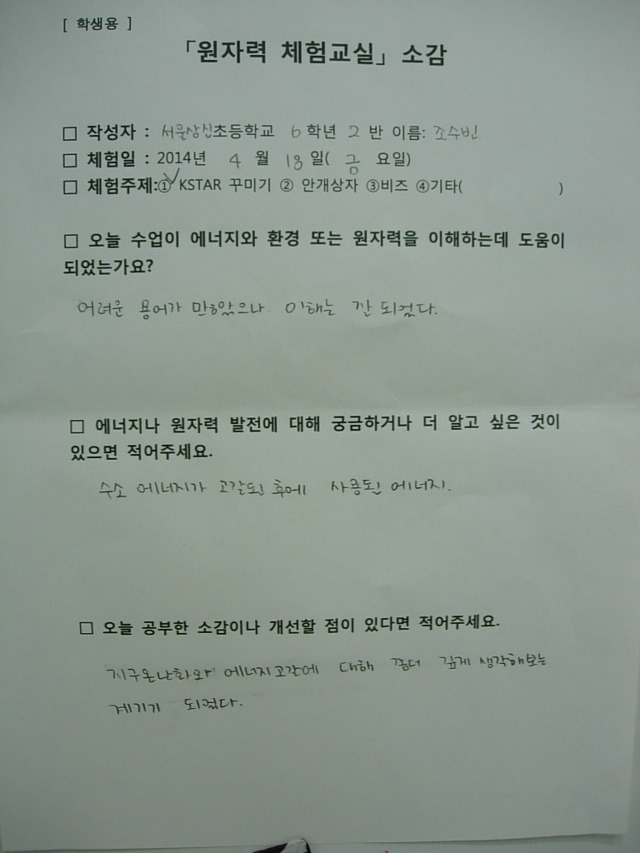 [ 학생용 ]
「원자력 체험교실」 소감
□ 작성자 : 서울상신초등학교 6학년 2 반 이름: 조수빈
□ 체험일 : 2014년 4 월 18일( 금 요일)
□ 체험주제:① KSTAR 꾸미기 ② 안개상자 ③비즈 ④기타( )
□ 오늘 수업이 에너지와 환경 또는 원자력을 이해하는데 도움이
되었는가요?
어려운 용어가 많았으나 이해는 잘 되었다.
□ 에너지나 원자력 발전에 대해 궁금하거나 더 알고 싶은 것이
있으면 적어주세요.
수소 에너지가 고갈된 후에 사용될 에너지.
□ 오늘 공부한 소감이나 개선할 점이 있다면 적어주세요.
지구온난화와 에너지고갈에 대해 좀더 깊게 생각해보는
계기가 되었다.